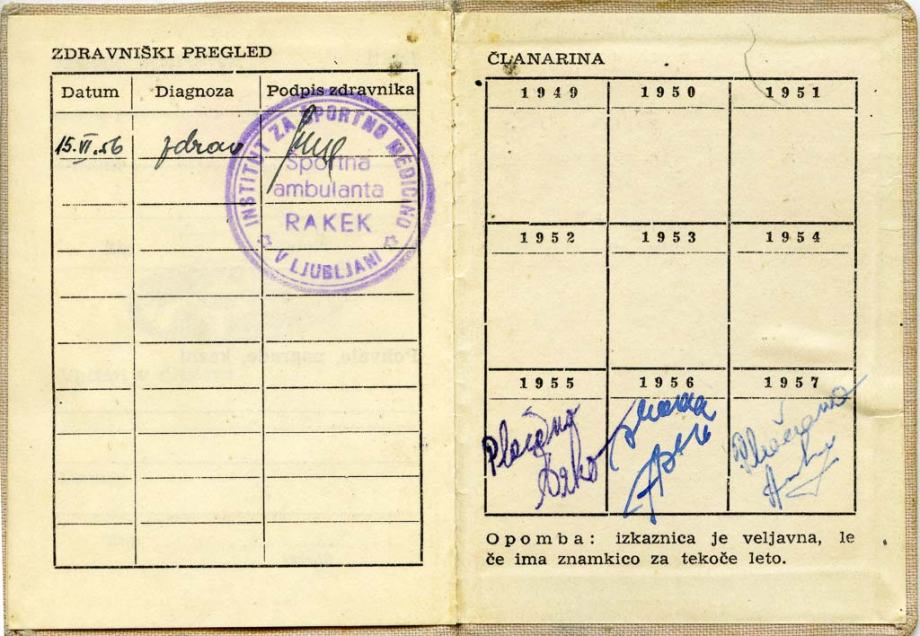 ZDRAVNIŠKI PREGLED
Datum Diagnoza Podpis zdravnika
15.VI.56 zdrav
INSTITUT ZA ŠPORTNO MEDICINO
Športna
ambulanta
RAKEK
V LJUBLJANI
ČLANARINA
1949 1950 1951
1952 1953 1954
1955 1956 1957
Plačano
Plačano
Opomba: izkaznica je veljavna, le
če ima znamkico za tekoče leto.